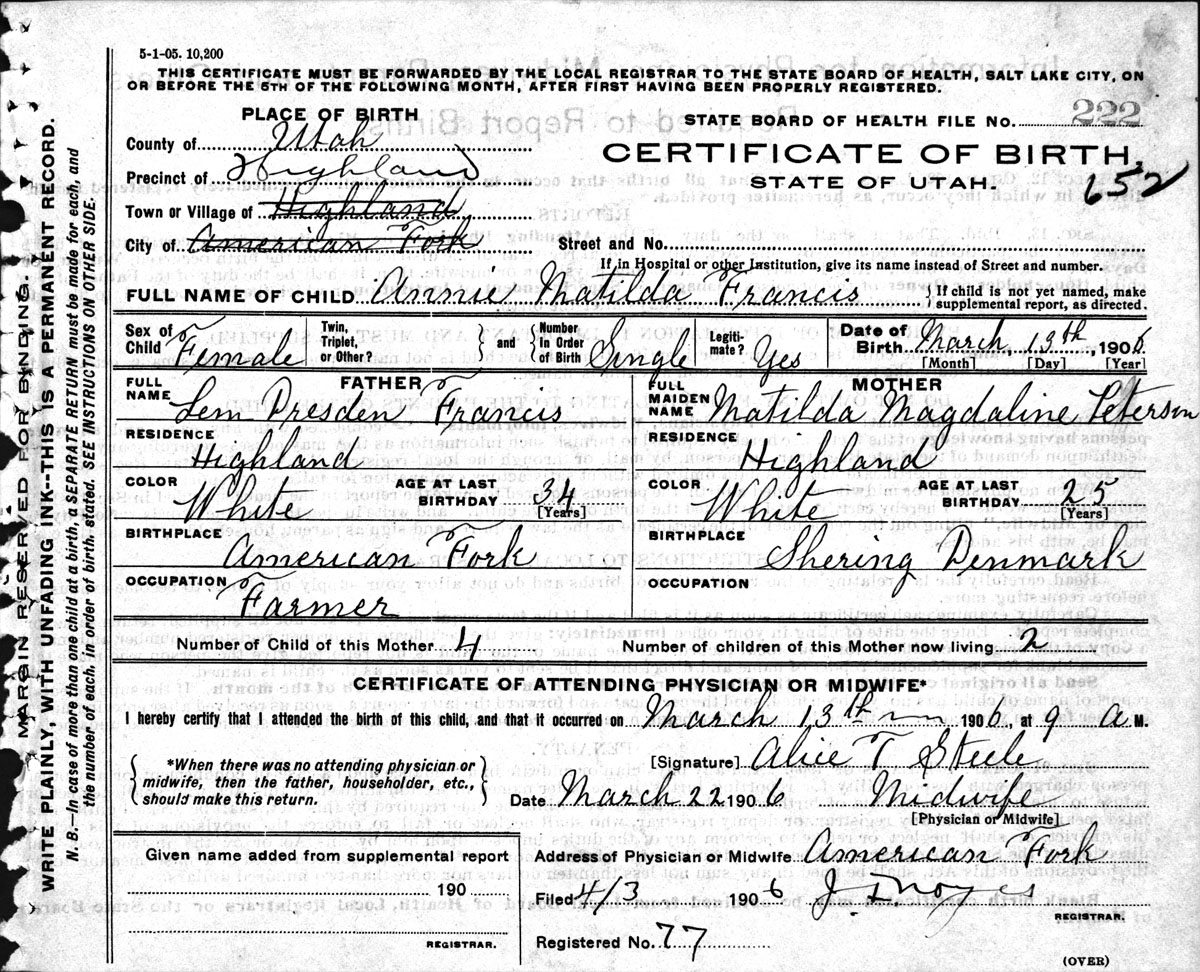 5-1-05. 10,200
THIS CERTIFICATE MUST BE FORWARDED BY THE LOCAL REGISTRAR TO THE STATE BOARD OF HEALTH, SALT LAKE CITY, ON
OR BEFORE THE 5TH OF THE FOLLOWING MONTH, AFTER FIRST HAVING BEEN PROPERLY REGISTERED.
PLACE OF BIRTH
County of Utah
Precinct of Highland
Town or Village of Highland
City of American Fork
STATE BOARD OF HEALTH FILE NO. 222
CERTIFICATE OF BIRTH,
STATE OF UTAH.
652
Street and No.
If in Hospital or other Institution, give its name instead of Street and number.
FULL NAME OF CHILD Annie Matilda Francis {If child is not yet named, make
supplemental report, as directed.
Sex of Child Female
Twin, Triplet, or Other? } and { Number In Order of Birth Single
Legiti-mate? Yes
Date of Birth March, 13th, 1906
[Month] [Day] [Year]
FATHER
FULL NAME Lem Presden Francis
RESIDENCE Highland
COLOR White AGE AT LAST BIRTHDAY 34 [Years]
BIRTHPLACE American Fork
OCCUPATION Farmer
MOTHER
FULL MAIDEN NAME Matilda Magdaline Peterson
RESIDENCE Highland
COLOR White AGE AT LAST BIRTHDAY 25 [Years]
BIRTHPLACE Shering Denmark
OCCUPATION
Number of Child of this Mother 4 Number of children of this Mother now living 2
CERTIFICATE OF ATTENDING PHYSICIAN OR MIDWIFE*
I hereby certify that I attended the birth of this child, and that it occurred on March 13th 1906, at 9 A M.
*When there was no attending physician or
midwife, then the father, householder, etc.,
should make this return.
[Signature] Alice T Steele
Date March 22 1906 Midwife
[Physician or Midwife]
Given name added from supplemental report
190
REGISTRAR.
Address of Physician or Midwife American Fork
Filed 4/3 1906 J. Noyes
REGISTRAR.
Registered No. 77
(OVER)
MARGIN RESERVED FOR BINDING.
WRITE PLAINLY, WITH UNFADING INK--THIS IS A PERMANENT RECORD.
N. B.—In case of more than one child at a birth, a SEPARATE RETURN must be made for each, and
the number of each, in order of birth, stated. SEE INSTRUCTIONS ON OTHER SIDE.